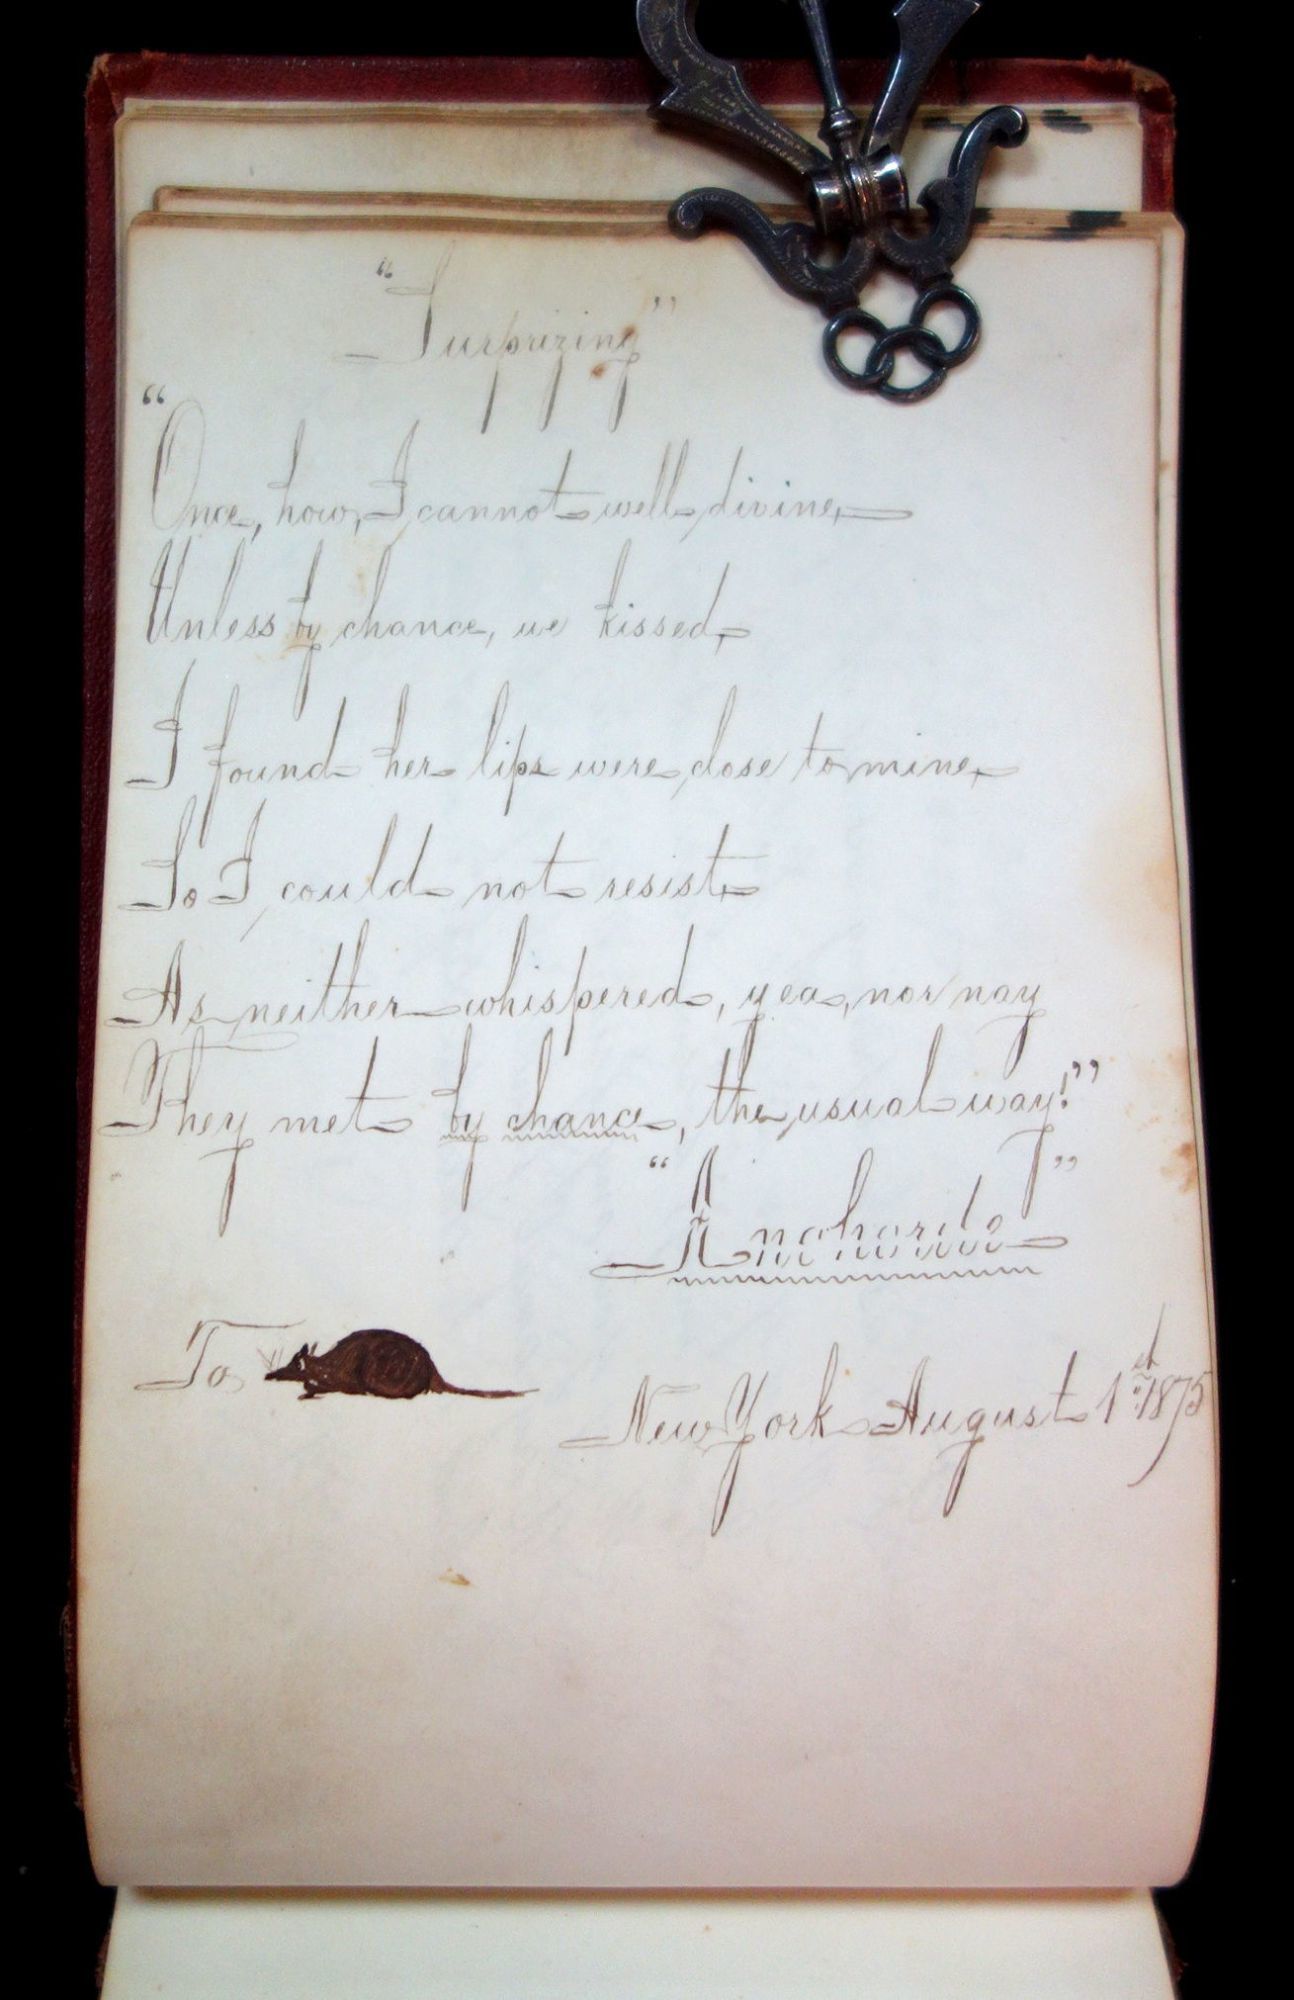 "Surprizing"
"Once, how, I cannot well divine,
Unless by chance, we kissed,
I found her lips were close to mine,
So I could not resist,
As neither whispered, yea, nor nay
They met by chance, the usual way!"
"Anchords"
To
New York August 1st 1875